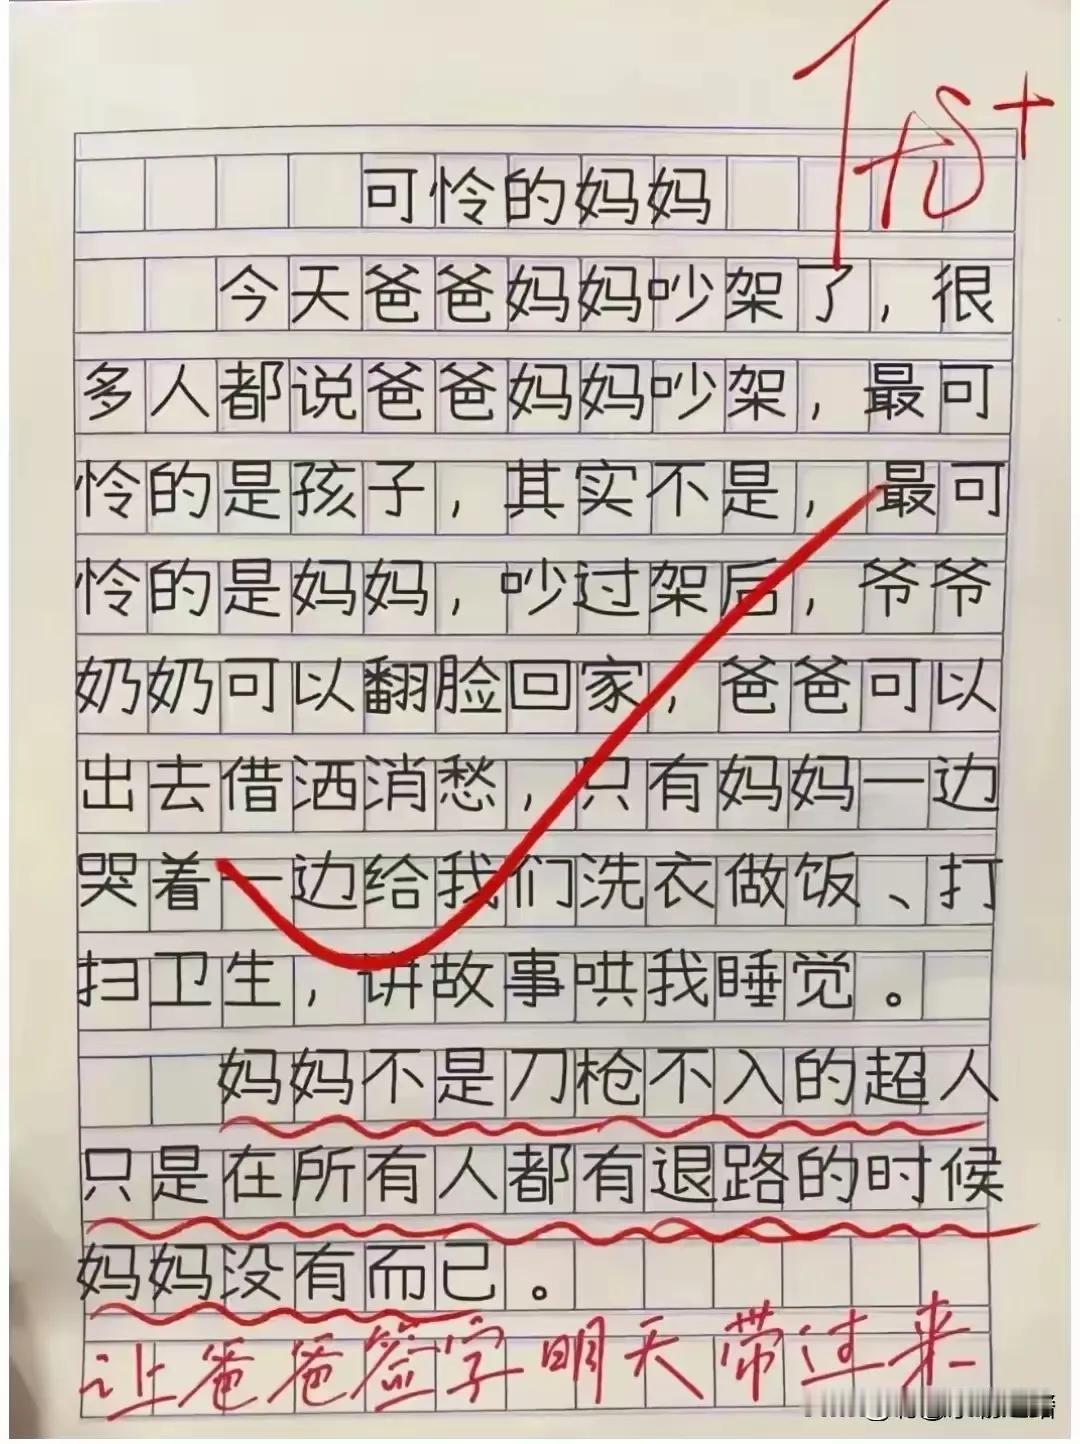 优+
可怜的妈妈
今天爸爸妈妈吵架了，很
多人都说爸爸妈妈吵架，最可
怜的是孩子，其实不是，最可
怜的是妈妈，吵过架后，爷爷
奶奶可以翻脸回家，爸爸可以
出去借洒消愁，只有妈妈一边
哭着一边给我们洗衣做饭、打
扫卫生，讲故事哄我睡觉。
妈妈不是刀枪不入的超人
只是在所有人都有退路的时候
妈妈没有而已。
让爸爸签字明天带过来